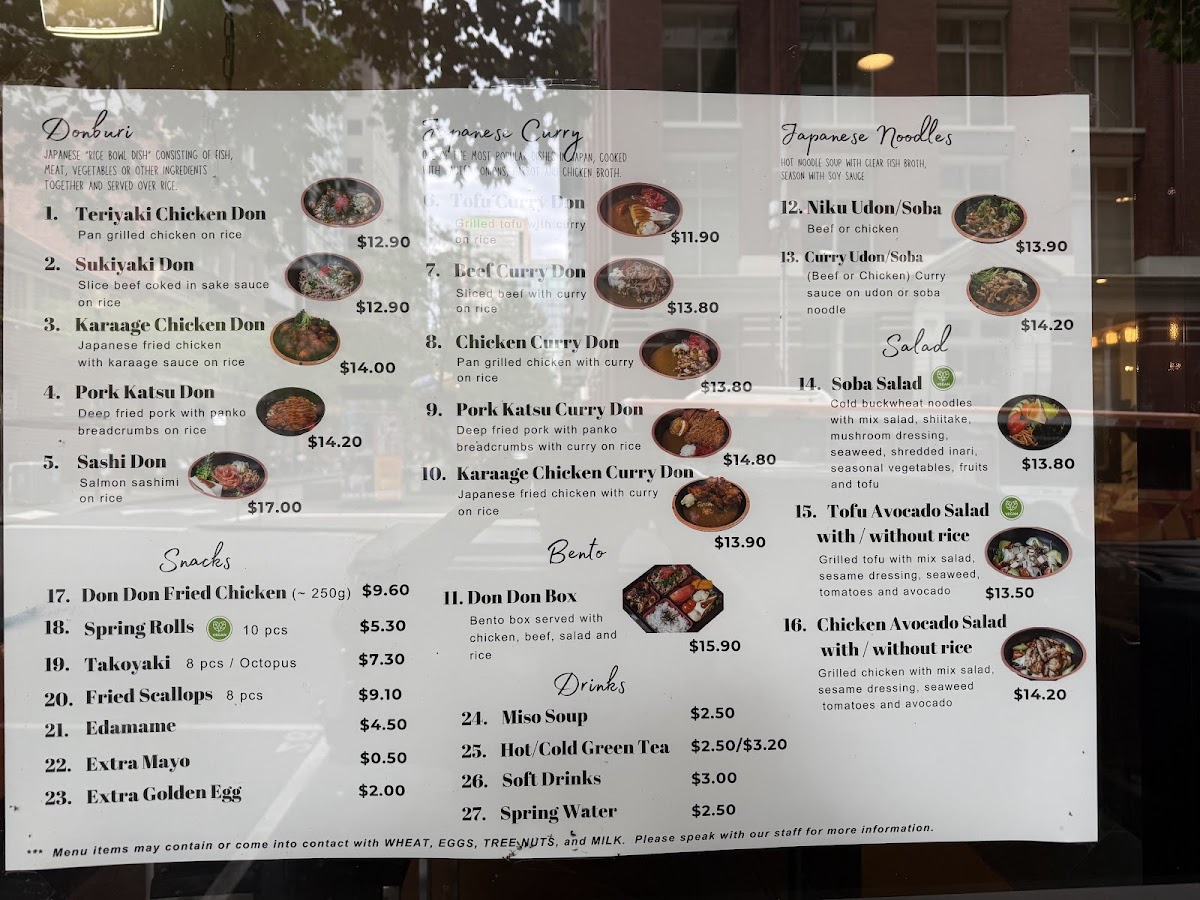 Donburi
JAPANESE "RICE BOWL DISH" CONSISTING OF FISH,
MEAT, VEGETABLES OR OTHER INGREDIENTS
TOGETHER AND SERVED OVER RICE.
1. Teriyaki Chicken Don
Pan grilled chicken on rice
$12.90
2. Sukiyaki Don
Slice beef coked in sake sauce
on rice
$12.90
3. Karaage Chicken Don
Japanese fried chicken
with karaage sauce on rice
$14.00
4. Pork Katsu Don
Deep fried pork with panko
breadcrumbs on rice
$14.20
5. Sashi Don
Salmon sashimi
on rice
$17.00
Snacks
17. Don Don Fried Chicken (~ 250g) $9.60
18. Spring Rolls VEGAN 10 pcs $5.30
19. Takoyaki 8 pcs / Octopus $7.30
20. Fried Scallops 8 pcs $9.10
21. Edamame $4.50
22. Extra Mayo $0.50
23. Extra Golden Egg $2.00
Japanese Curry
MOST POPULAR DISHES IN JAPAN, COOKED
CHICKEN BROTH.
6. Tofu Curry Don
Grilled tofu with curry
on rice
$11.90
7. Beef Curry Don
Sliced beef with curry
on rice
$13.80
8. Chicken Curry Don
Pan grilled chicken with curry
on rice
$13.80
9. Pork Katsu Curry Don
Deep fried pork with panko
breadcrumbs with curry on rice
$14.80
10. Karaage Chicken Curry Don
Japanese fried chicken with curry
on rice
$13.90
Bento
11. Don Don Box
Bento box served with
chicken, beef, salad and
rice
$15.90
Drinks
24. Miso Soup $2.50
25. Hot/Cold Green Tea $2.50/$3.20
26. Soft Drinks $3.00
27. Spring Water $2.50
Japanese Noodles
HOT NOODLE SOUP WITH CLEAR FISH BROTH,
SEASON WITH SOY SAUCE
12. Niku Udon/Soba
Beef or chicken
$13.90
13. Curry Udon/Soba
(Beef or Chicken) Curry
sauce on udon or soba
noodle
$14.20
Salad
14. Soba Salad VEGAN
Cold buckwheat noodles
with mix salad, shiitake,
mushroom dressing,
seaweed, shredded inari,
seasonal vegetables, fruits
and tofu
$13.80
15. Tofu Avocado Salad VEGAN
with / without rice
Grilled tofu with mix salad,
sesame dressing, seaweed,
tomatoes and avocado
$13.50
16. Chicken Avocado Salad
with / without rice
Grilled chicken with mix salad,
sesame dressing, seaweed
tomatoes and avocado
$14.20
*** Menu items may contain or come into contact with WHEAT, EGGS, TREE NUTS, and MILK. Please speak with our staff for more information.